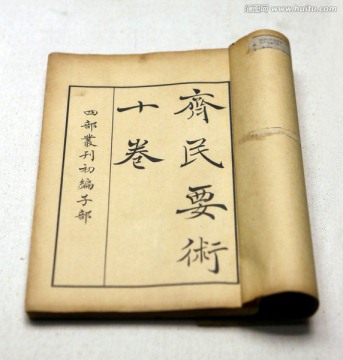 齊民要術
十卷
四部叢刊初編子部
www.huitu.com